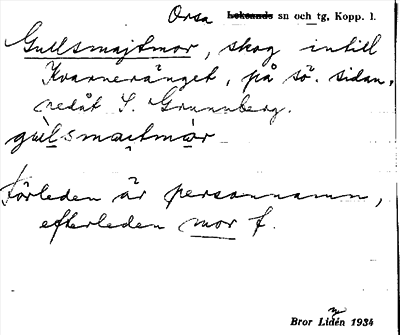 Orsa Leksands sn och tg, Kopp. l.
Gullsmajtmor, skog intill
Kvarneränget, på sö. sidan,
nedåt S. Grunnberg.
gùlsmaitmàr
Förleden är personnamn,
efterleden mor f.
Bror Lidén 1934